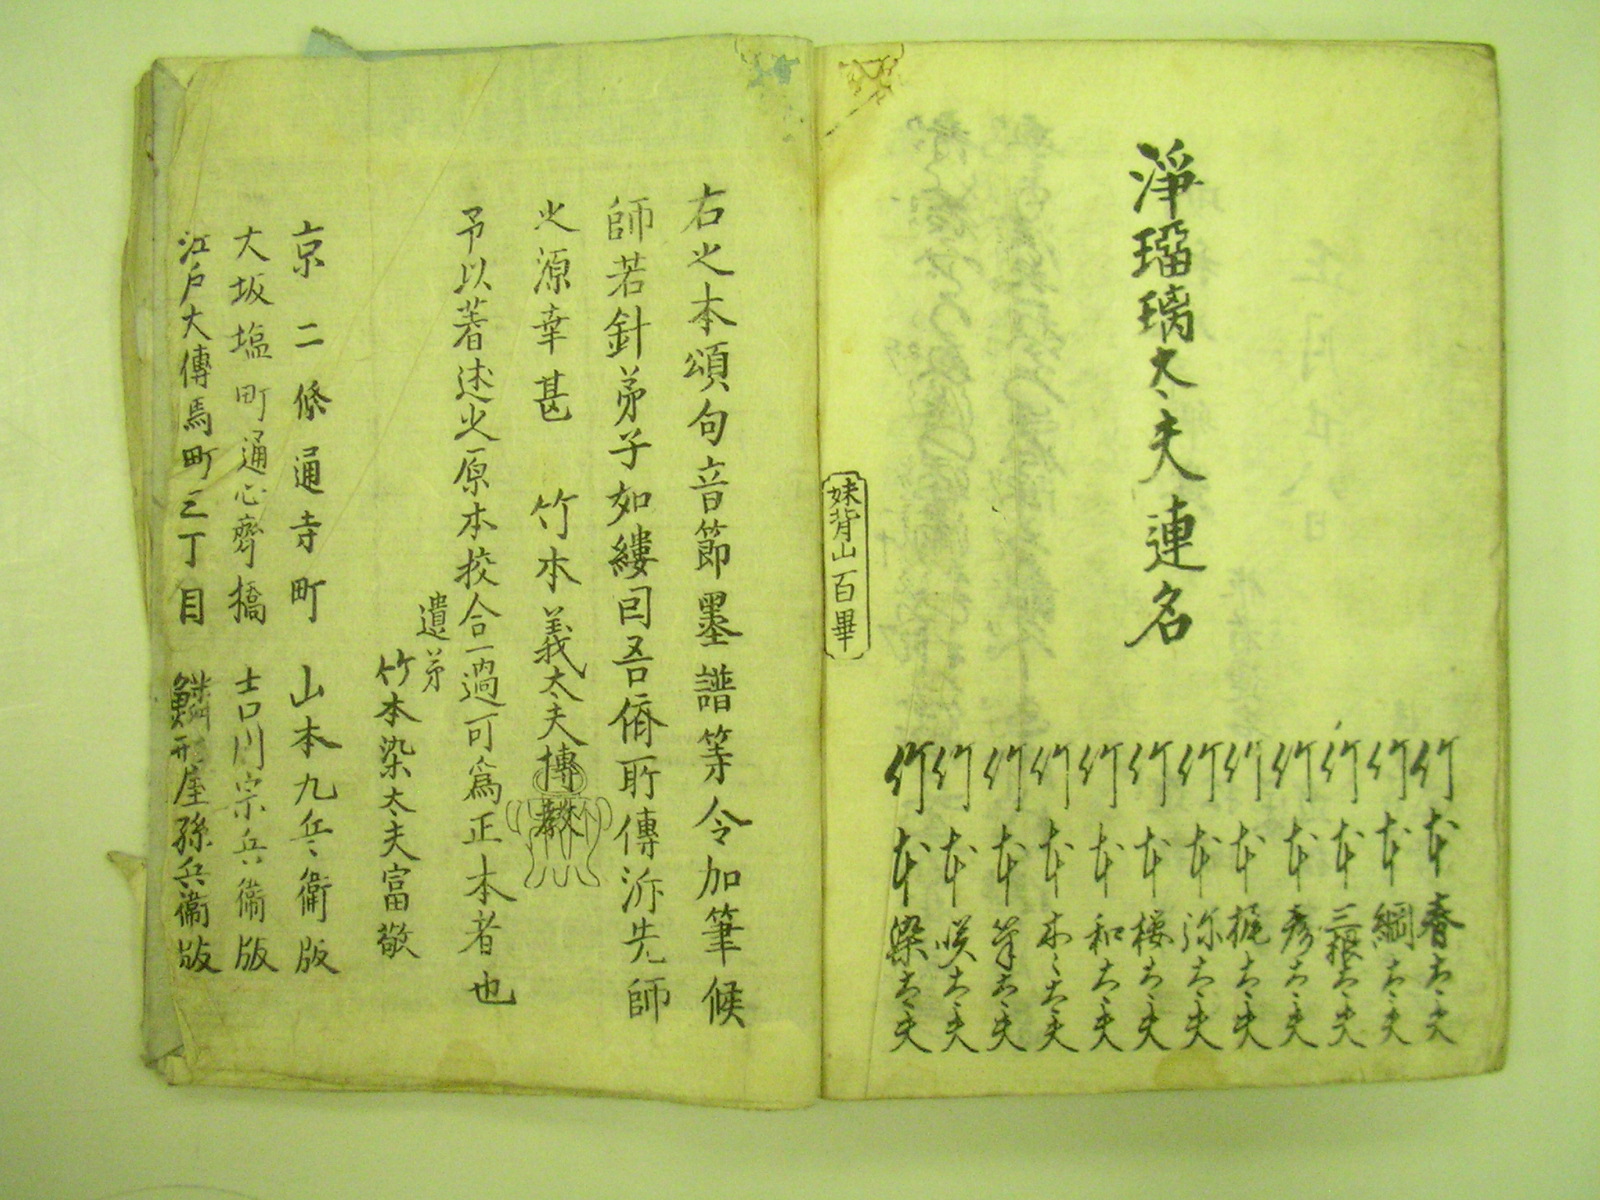 淨瑠璃太夫連名
竹本春太夫
竹本綱太夫
竹本三根太夫
竹本彦太夫
竹本梶太夫
竹本弥太夫
竹本桜太夫
竹本和太夫
竹本木々太夫
竹本筆太夫
竹本咲太夫
竹本染太夫
妹背山 百畢
右之本頌句音節墨譜等令加筆候
師若針弟子如縷囙吾儕所傳泝先師
之源幸甚 竹本義太夫博教
予以著述之原本挍合一過可為正本者也
遺弟
竹本染太夫富敬
京二條通寺町 山本九兵衛版
大坂塩町通心齊橋 吉川宗兵衛版
江戸大傳馬町三丁目 鱗形屋孫兵衛版